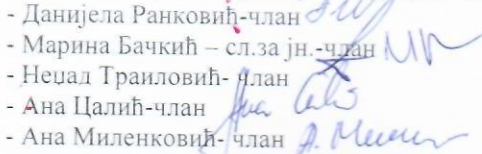 - Данијела Ранковић-члан
- Марина Бачкић – сл.за јн.-члан
- Ненад Траиловић- члан
- Ана Цалић-члан
- Ана Миленковић- члан